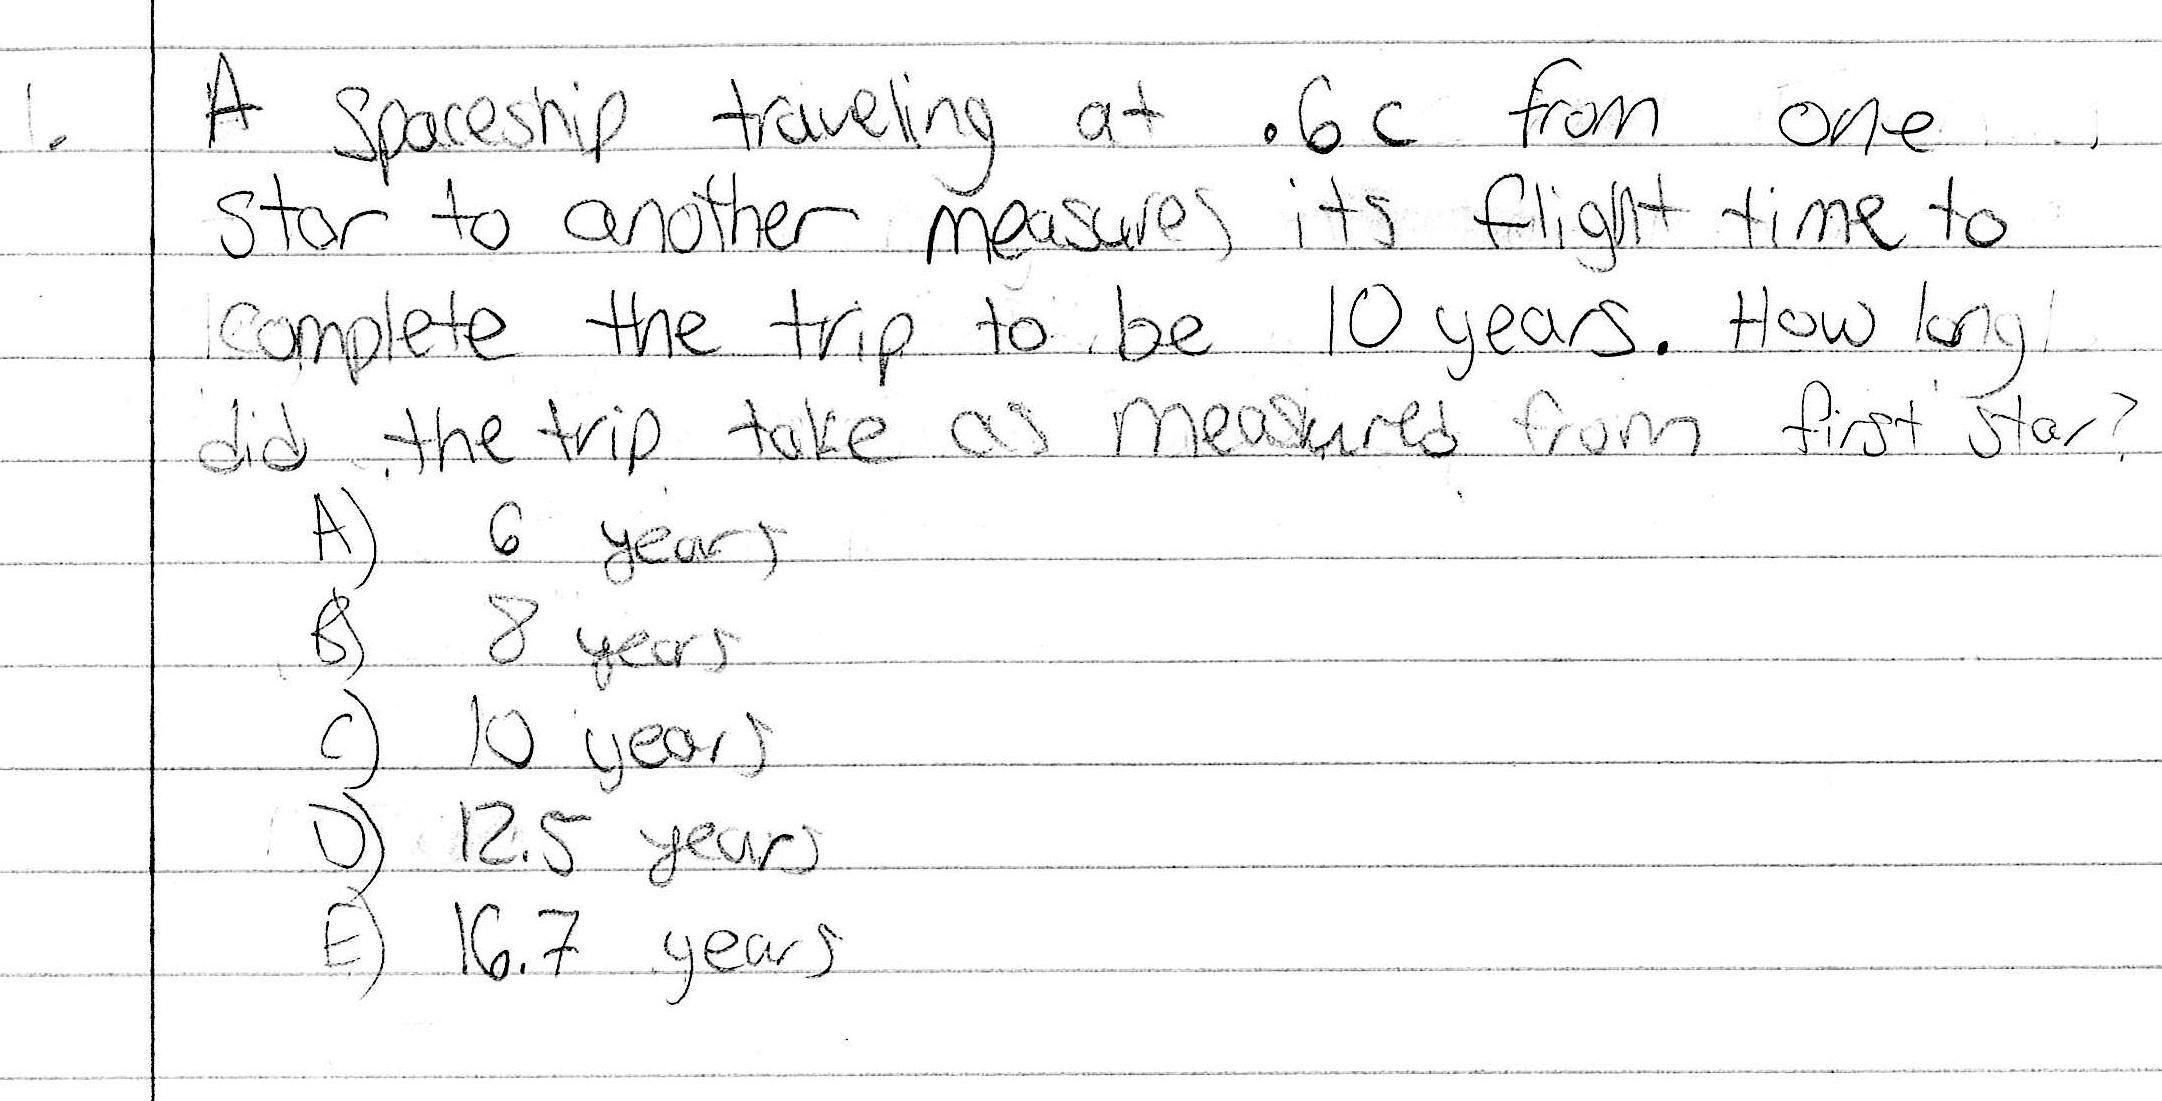 1. A spaceship traveling at .6c from one
star to another measures its flight time to
complete the trip to be 10 years. How long
did the trip take as measured from first star?
A) 6 years
B) 8 years
C) 10 years
D) 12.5 years
E) 16.7 years